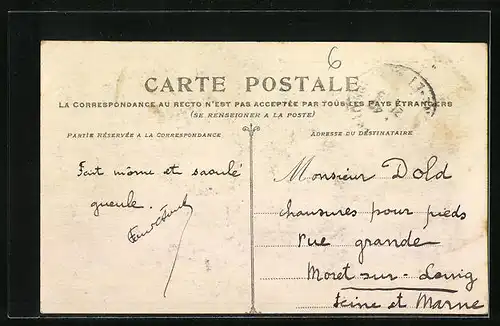 6
CARTE POSTALE
LA CORRESPONDANCE AU RECTO N'EST PAS ACCEPTÉE PAR TOUS LES PAYS ÉTRANGERS
(SE RENSEIGNER A LA POSTE)
PARTIE RÉSERVÉE A LA CORRESPONDANCE
ADRESSE DU DESTINATAIRE
Fait môme et saoulé
gueule.
Monsieur Dold
chaussures pour pieds
rue grande
Moret-sur-Loing
Seine et Marne